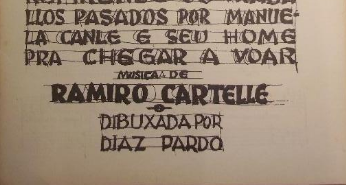 LLOS PASADOS POR MANUE-
LA CANLE E SEU HOME
PRA CHEGAR A VOAR
MUSICA DE
RAMIRO CARTELLE
DIBUXADA POR
DIAZ PARDO